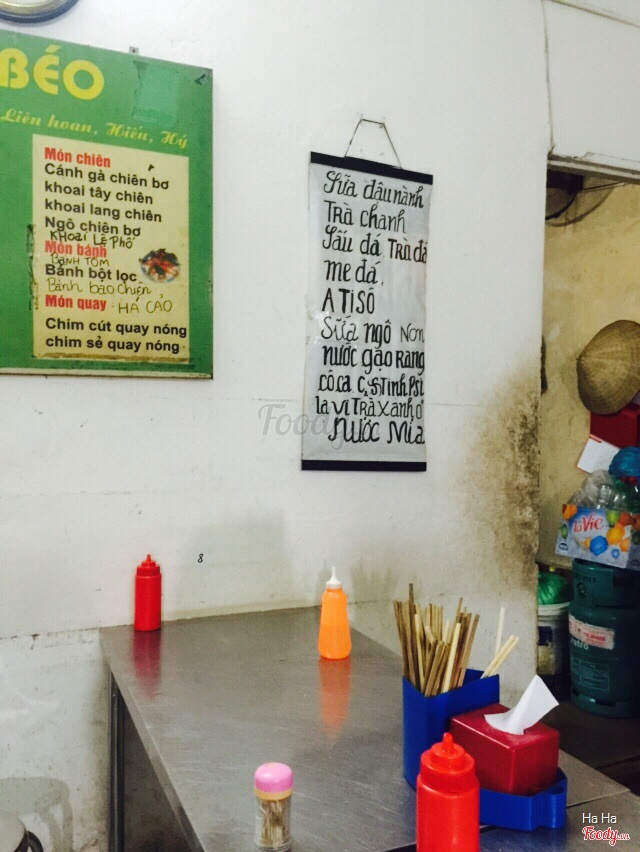 BÉO
Liên hoan, Hiếu, Hỷ
Món chiên
Cánh gà chiên bơ
khoai tây chiên
khoai lang chiên
Ngô chiên bơ
KHOAI LỆ PHỐ
Món bánh
BÁNH TÔM
Bánh bột lọc
Bánh bao chiên
Món quay HÁ CẢO
Chim cút quay nóng
chim sẻ quay nóng
Sữa đậu nành
Trà chanh
Sấu đá, Trà đá
me đá,
ATISÔ
Sữa ngô Non
nước gạo Rang
cô ca C, STinh PSi
la Vi Trà Xanh O
Nước Mía
Foody
8
LaVie
Ha Ha
Foody.vn